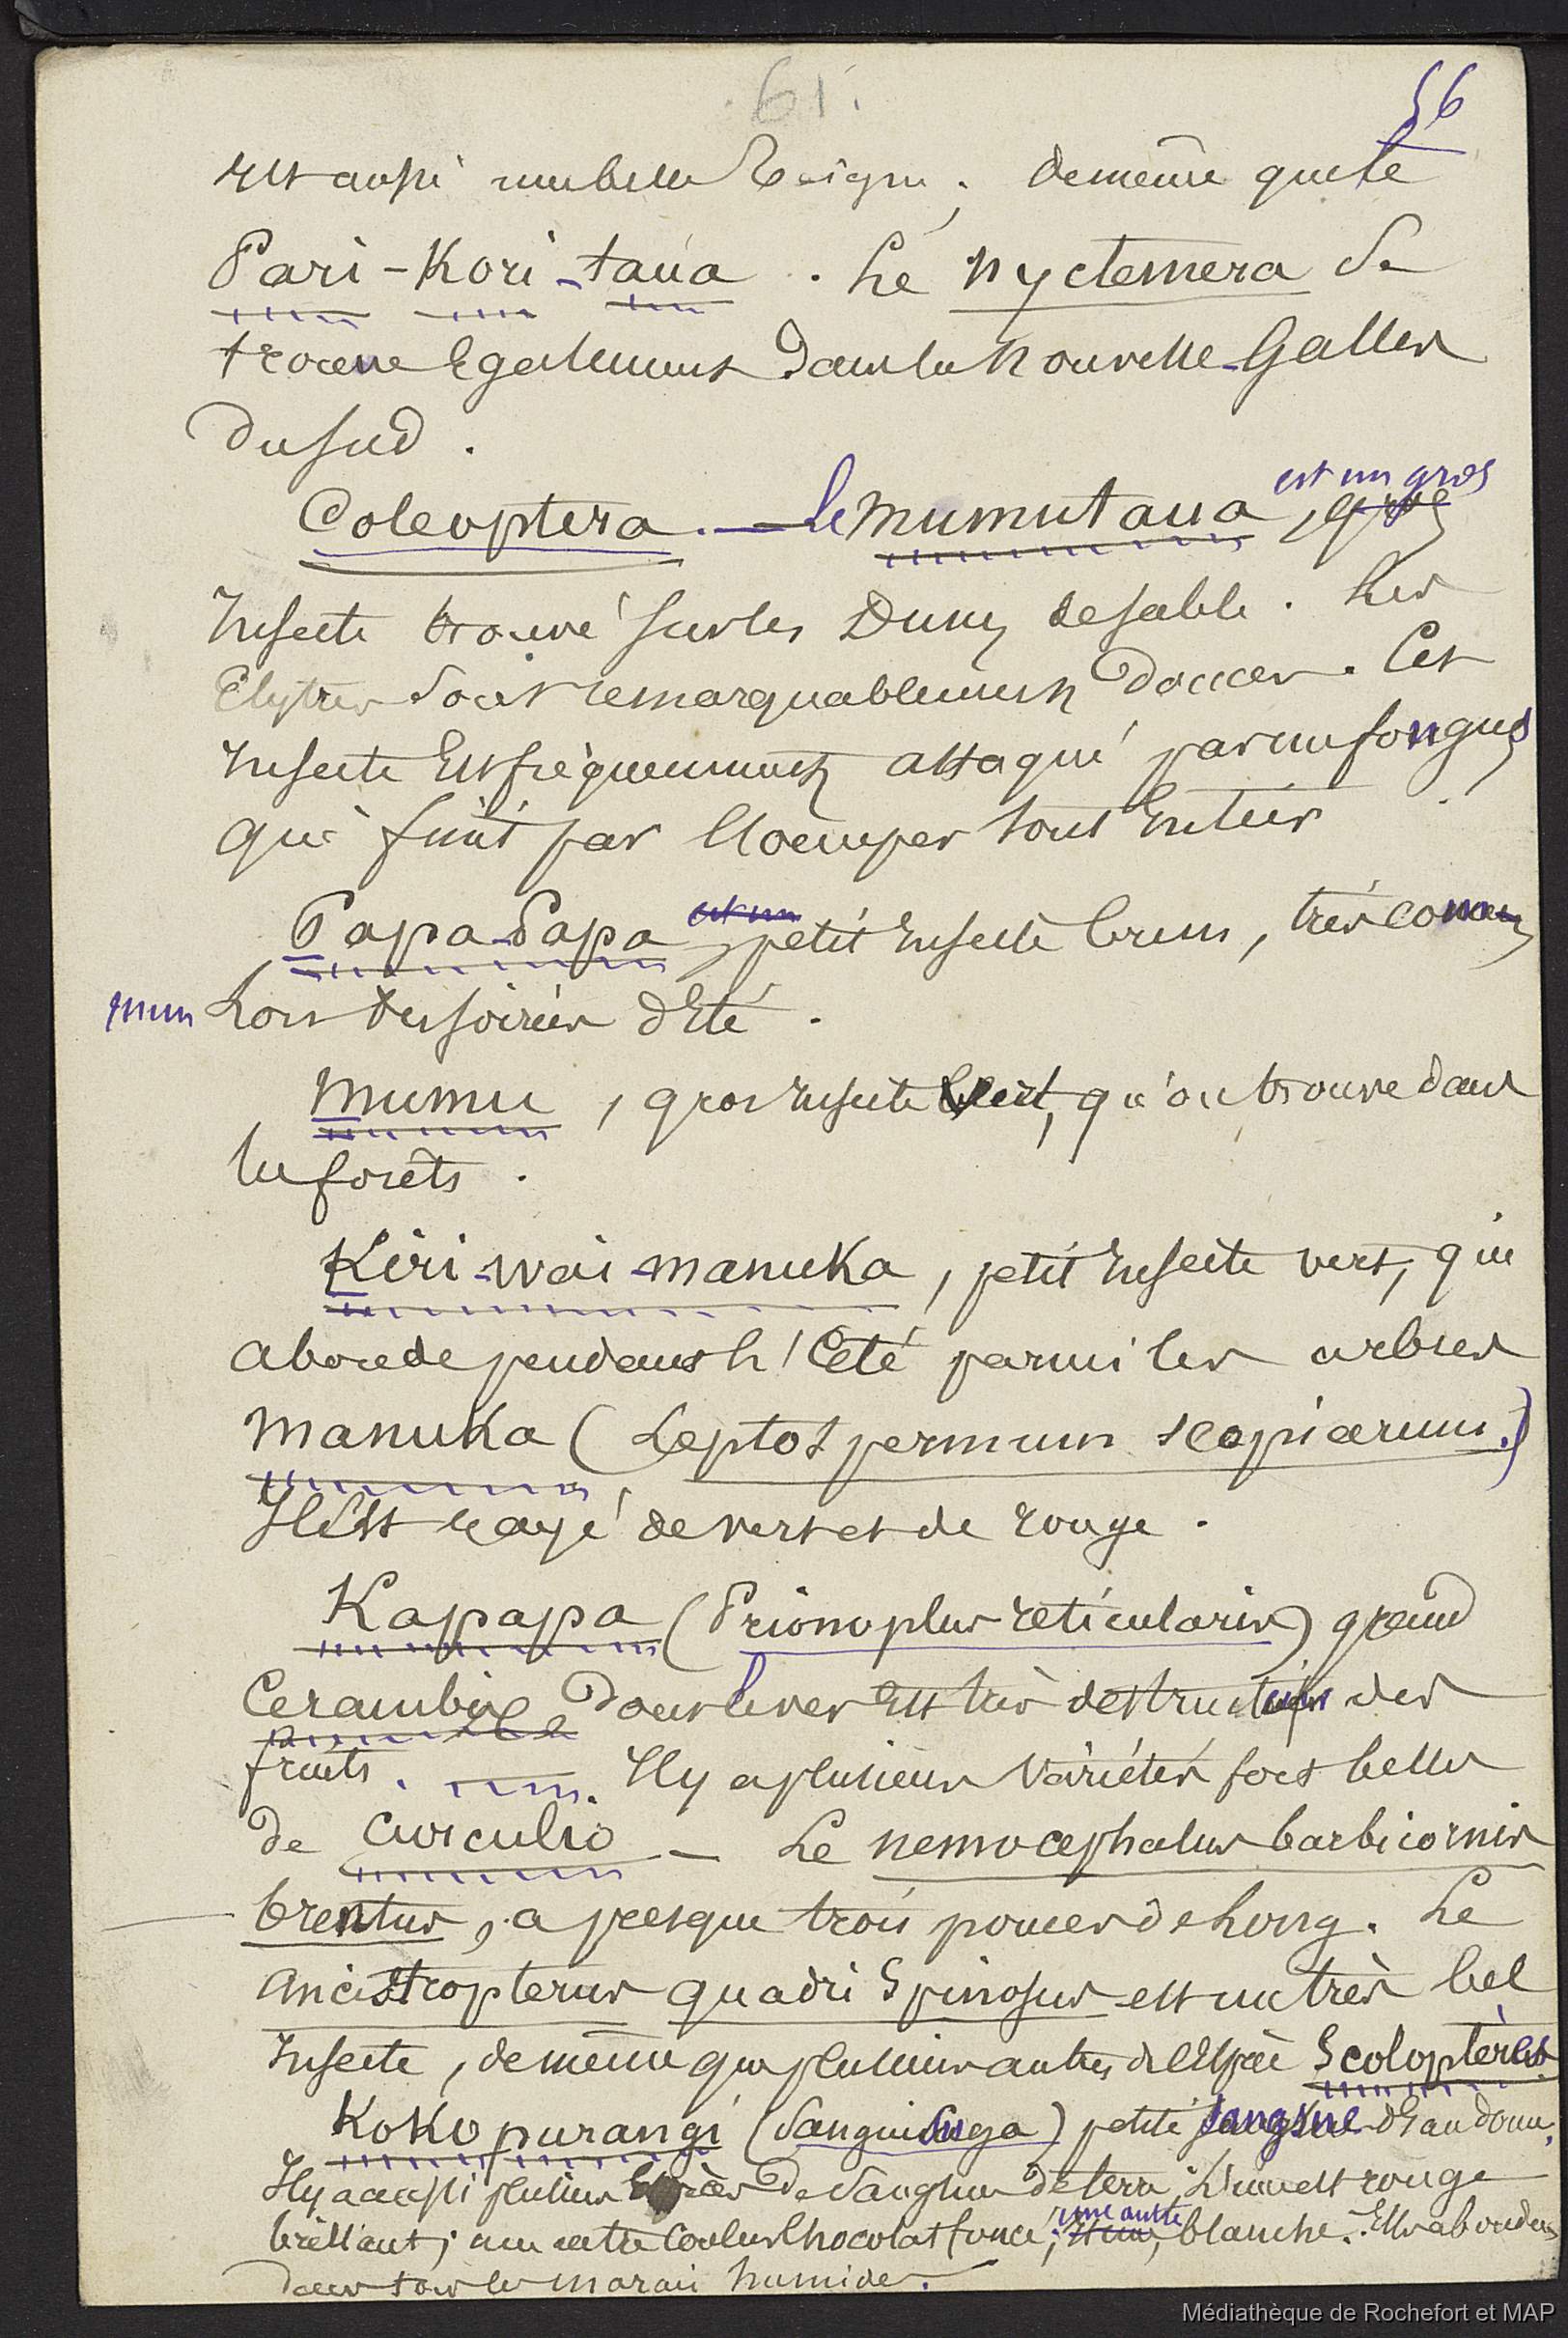 61.
56
est aussi une belle Teigne ; de même que le
Pari-Kori-taua . Le Nyctemera se
trouve Egalement dans la Nouvelle-Galles
du sud .
est un gros
Coleoptera . — le Mumutaua , gros
Insecte trouvé sur les Dunes de sable . Les
Elytres sont remarquablement douces . Cet
Insecte Est fréquemment attaqué par un fongus
qui finit par l'occuper tout Entier
est un
Papa-Papa , petit Insecte brun , très com
mun Lors des soirées d'Eté .
Mumu , gros Insecte Vert, qu'on trouve dans
les forêts .
Kiri-wai-manuka , petit Insecte vert, qui
abonde pendant l'Eté parmi les arbres
manuka ( Leptospermum scopiarum.)
Il Est rayé de vert et de rouge .
Kapapa ( Prionoplus reticularis ) grand
Cerambix dont le ver Est très destructeur des
fruits . — Il y a plusieurs Variétés fort belles
de Curculio — Le nemocephalus barbicornis
brentus , a presque trois pouces de Long . Le
Ancistropterus quadri Spinosus est un très bel
Insecte , de même que plusieurs autres de l'Espèce Scoloptères.
Koko purangi ( Sanguisuga ) petite sangsue d'Eau douce.
Il y a aussi plusieurs Espèces de Sangsue de terre ; L'une est rouge
une autre
brillant ; une autre Couleur Chocolat foncé ; blanche . Elles abondent
dans tous les marais humides .
Médiathèque de Rochefort et MAP